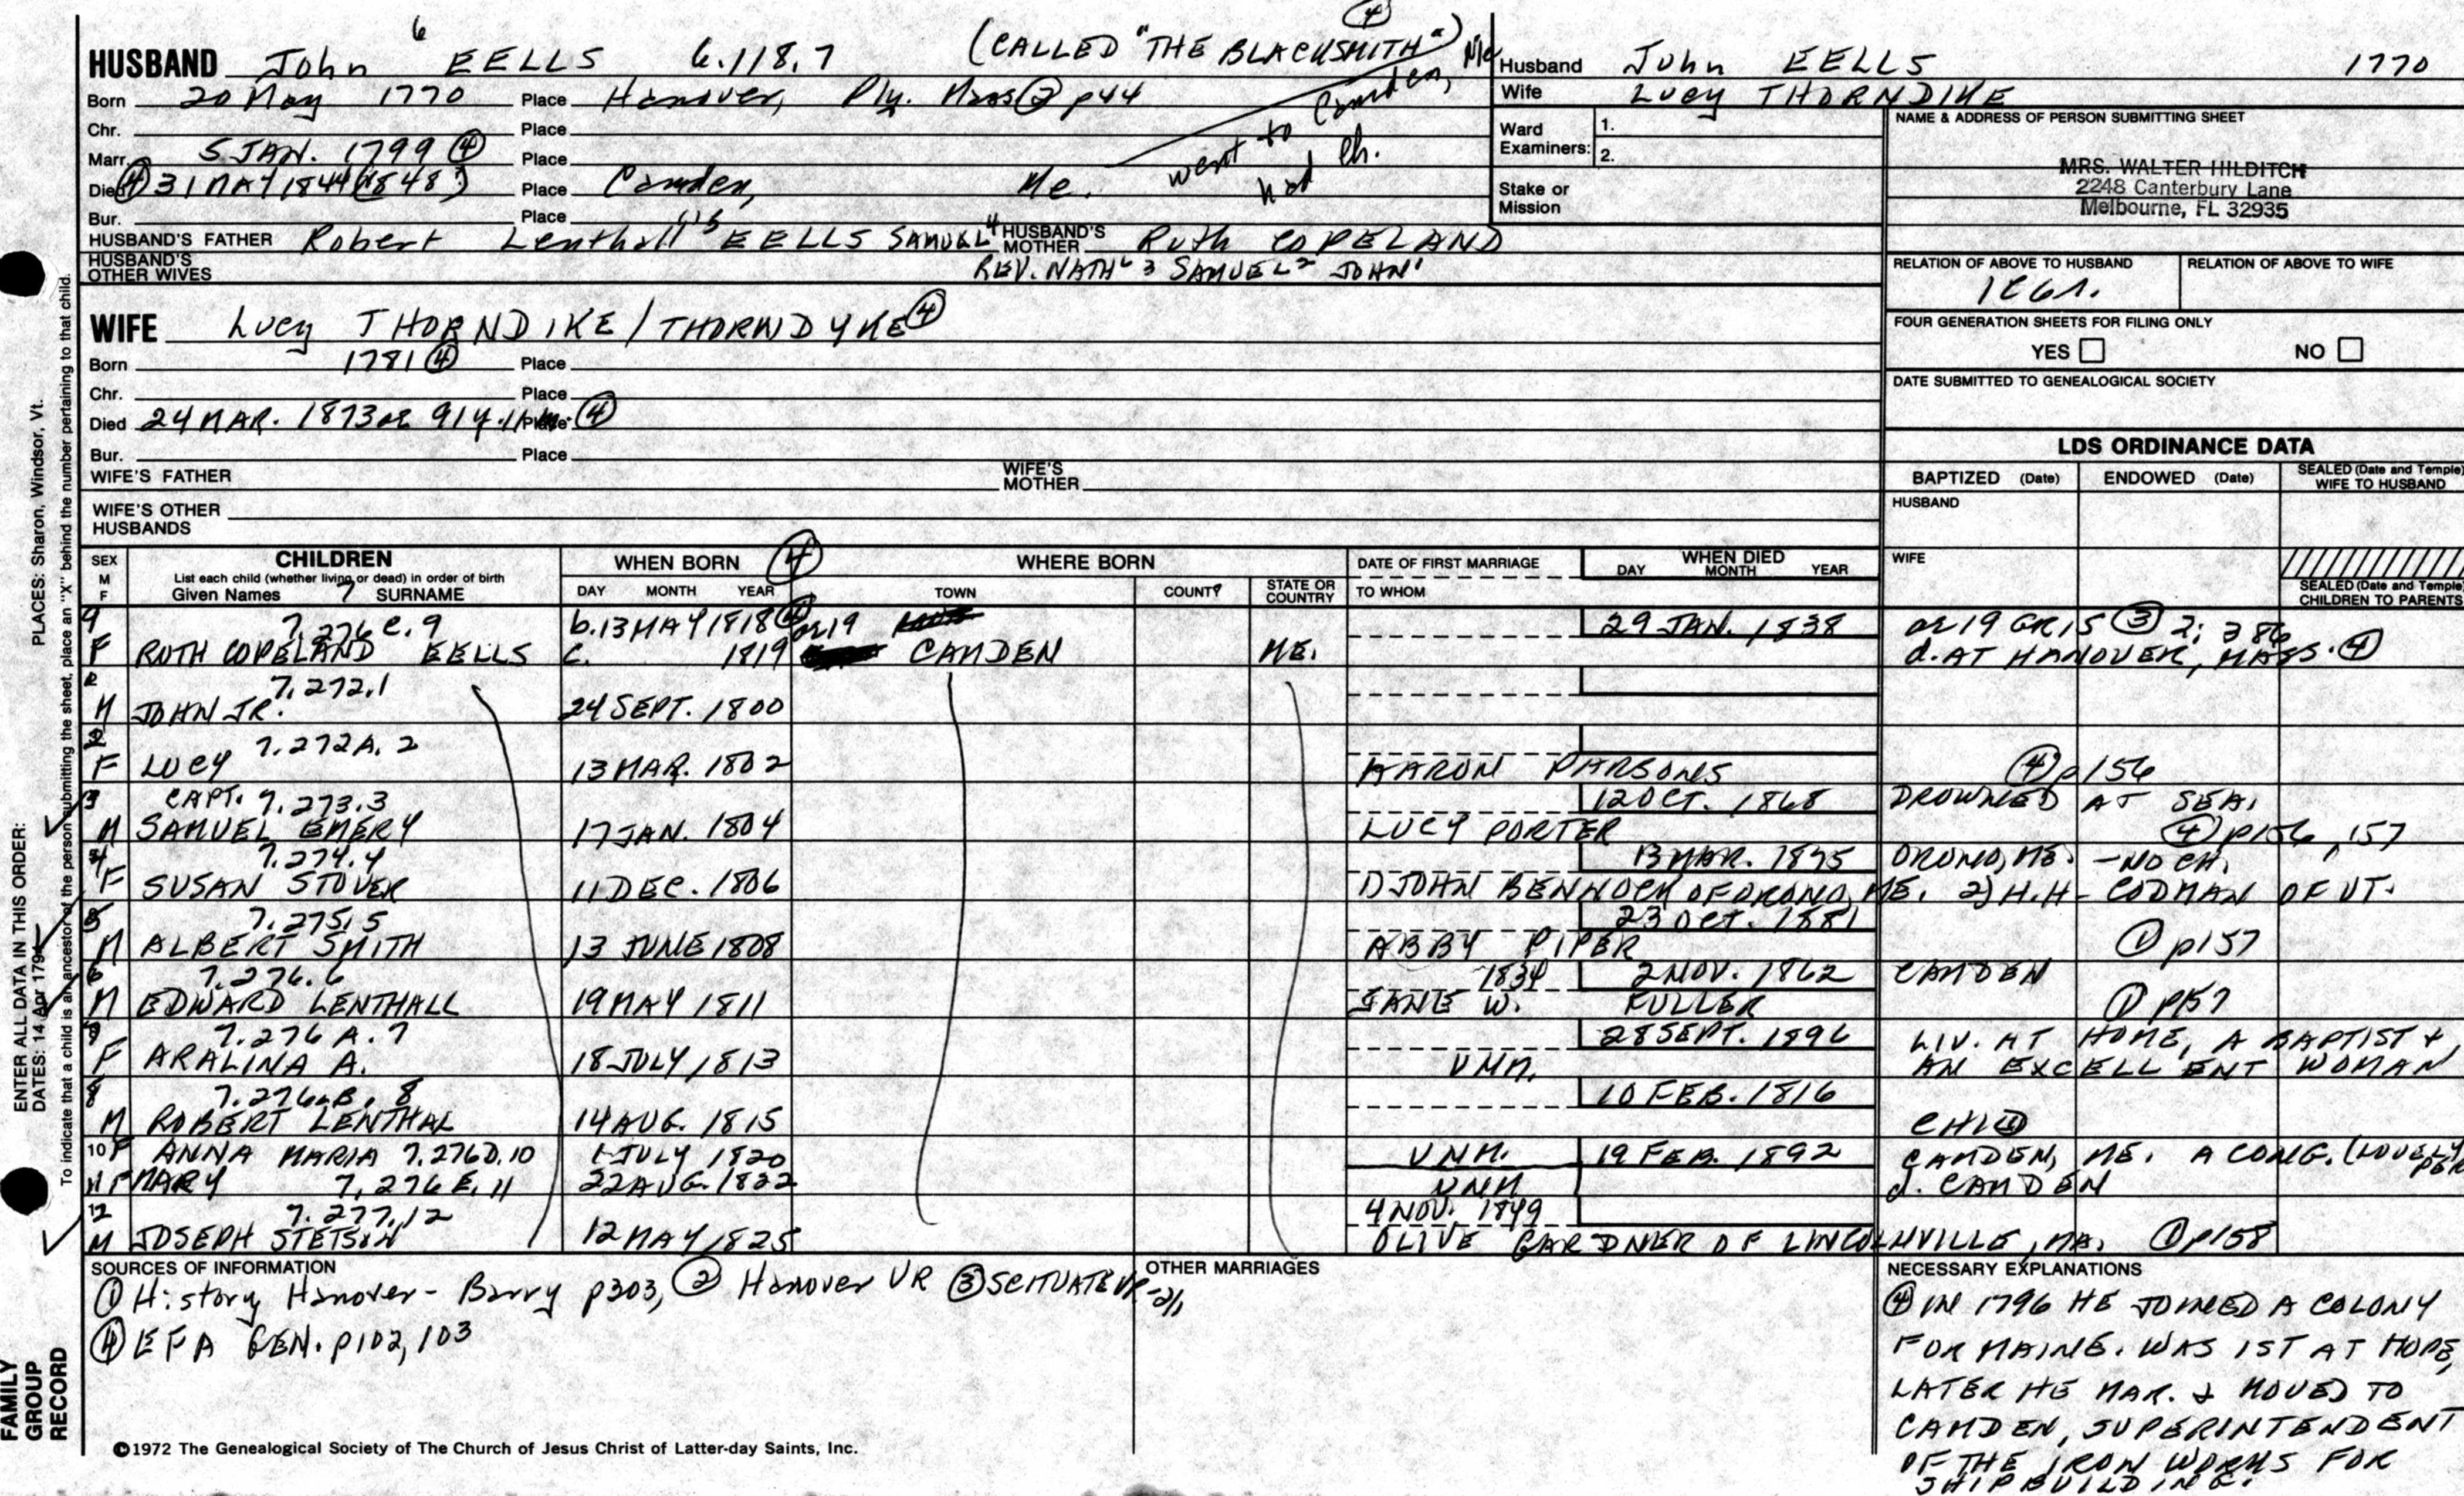 6
④
HUSBAND John EELLS 6.118.7 (CALLED "THE BLACKSMITH")
Born 20 May 1770 Place Hanover, Ply. Mass ② p44
went to Camden, Me
had ch.
Chr. Place
Marr. 5 JAN. 1799 ④ Place
Died ④ 31 MAY 1844 (1848?) Place Camden, Me.
Bur. Place
HUSBAND'S FATHER Robert Lenthall 5 EELLS SAMUEL 4 HUSBAND'S MOTHER Ruth COPELAND
HUSBAND'S OTHER WIVES REV. NATH'L 3 SAMUEL 2 JOHN 1
Husband John EELLS 1770
Wife Lucy THORNDIKE
Ward Examiners: 1.
2.
Stake or Mission
NAME & ADDRESS OF PERSON SUBMITTING SHEET
MRS. WALTER HILDITCH
2248 Canterbury Lane
Melbourne, FL 32935
RELATION OF ABOVE TO HUSBAND RELATION OF ABOVE TO WIFE
FOUR GENERATION SHEETS FOR FILING ONLY
YES NO
DATE SUBMITTED TO GENEALOGICAL SOCIETY
WIFE Lucy THORNDIKE/THORNDYKE ④
Born 1781 ④ Place
Chr. Place
Died 24 MAR. 1873 or 91 y. 11 m. Place ④
Bur. Place
WIFE'S FATHER WIFE'S MOTHER
WIFE'S OTHER HUSBANDS
LDS ORDINANCE DATA
BAPTIZED (Date) ENDOWED (Date) SEALED (Date and Temple) WIFE TO HUSBAND
HUSBAND
WIFE
SEALED (Date and Temple) CHILDREN TO PARENTS
SEX M F
CHILDREN
List each child (whether living or dead) in order of birth
Given Names 7 SURNAME
WHEN BORN ④
DAY MONTH YEAR
WHERE BORN
TOWN COUNTY STATE OR COUNTRY
DATE OF FIRST MARRIAGE
TO WHOM
WHEN DIED
DAY MONTH YEAR
9 7.276 C. 9 b. 13 MAY 1818 ④ or 19 29 JAN. 1838 or 19 GR15 ③ 2; 386
F RUTH COPELAND EELLS C. 1819 CAMDEN ME. d. AT HANOVER, MASS. ④
7.272.1
M JOHN JR. 24 SEPT. 1800
2 7.272A. 2
F LUCY 13 MAR. 1802 AARON PARSONS ④ p156
3 CAPT. 7.273.3 12 OCT. 1868 DROWNED AT SEA.
M SAMUEL EMERY 17 JAN. 1804 LUCY PORTER ④ p156, 157
4 7.274.4 13 MAR. 1895 ORONO, ME. - NO CH.
F SUSAN STOVER 11 DEC. 1806 1) JOHN BENNOCH OF ORONO, ME. 2) H.H. CODMAN OF VT.
5 7.275.5 23 Oct. 1881
M ALBERT SMITH 13 JUNE 1808 ABBY PIPER ① p157
6 7.276.6 1834 2 NOV. 1862 CAMDEN
M EDWARD LENTHALL 19 MAY 1811 JANE W. FULLER ① p157
7 7.276 A. 7 28 SEPT. 1896 LIV. AT HOME, A BAPTIST +
F ARALINA A. 18 JULY 1813 UNM. AN EXCELLENT WOMAN
8 7.276 B. 8 10 FEB. 1816
M ROBERT LENTHAL 14 AUG. 1815 CHILD
10 F ANNA MARIA 7.276D.10 1 JULY 1820 UNM. 19 FEB. 1892 CAMDEN, ME. A CONG. (LOVELY PER
11 F MARY 7.276 E. 11 22 AUG. 1822 UNM d. CAMDEN
12 7.277.12 4 NOV. 1849
M JOSEPH STETSON 12 MAY 1825 OLIVE GARDNER OF LINCOLNVILLE, MA. ① p158
SOURCES OF INFORMATION
① History Hanover - Barry p303, ② Hanover VR ③ SCITUATE VR
④ EFA GEN. p102, 103
OTHER MARRIAGES
NECESSARY EXPLANATIONS
④ IN 1796 HE JOINED A COLONY
FOR MAINE. WAS 1ST AT HOPE,
LATER HE MAR. & MOVED TO
CAMDEN, SUPERINTENDENT
OF THE IRON WORKS FOR
SHIPBUILDING.
©1972 The Genealogical Society of The Church of Jesus Christ of Latter-day Saints, Inc.
ENTER ALL DATA IN THIS ORDER:
DATES: 14 Apr 1794
PLACES: Sharon, Windsor, Vt.
To indicate that a child is an ancestor of the person submitting the sheet, place an "X" behind the number pertaining to that child.
FAMILY
GROUP
RECORD